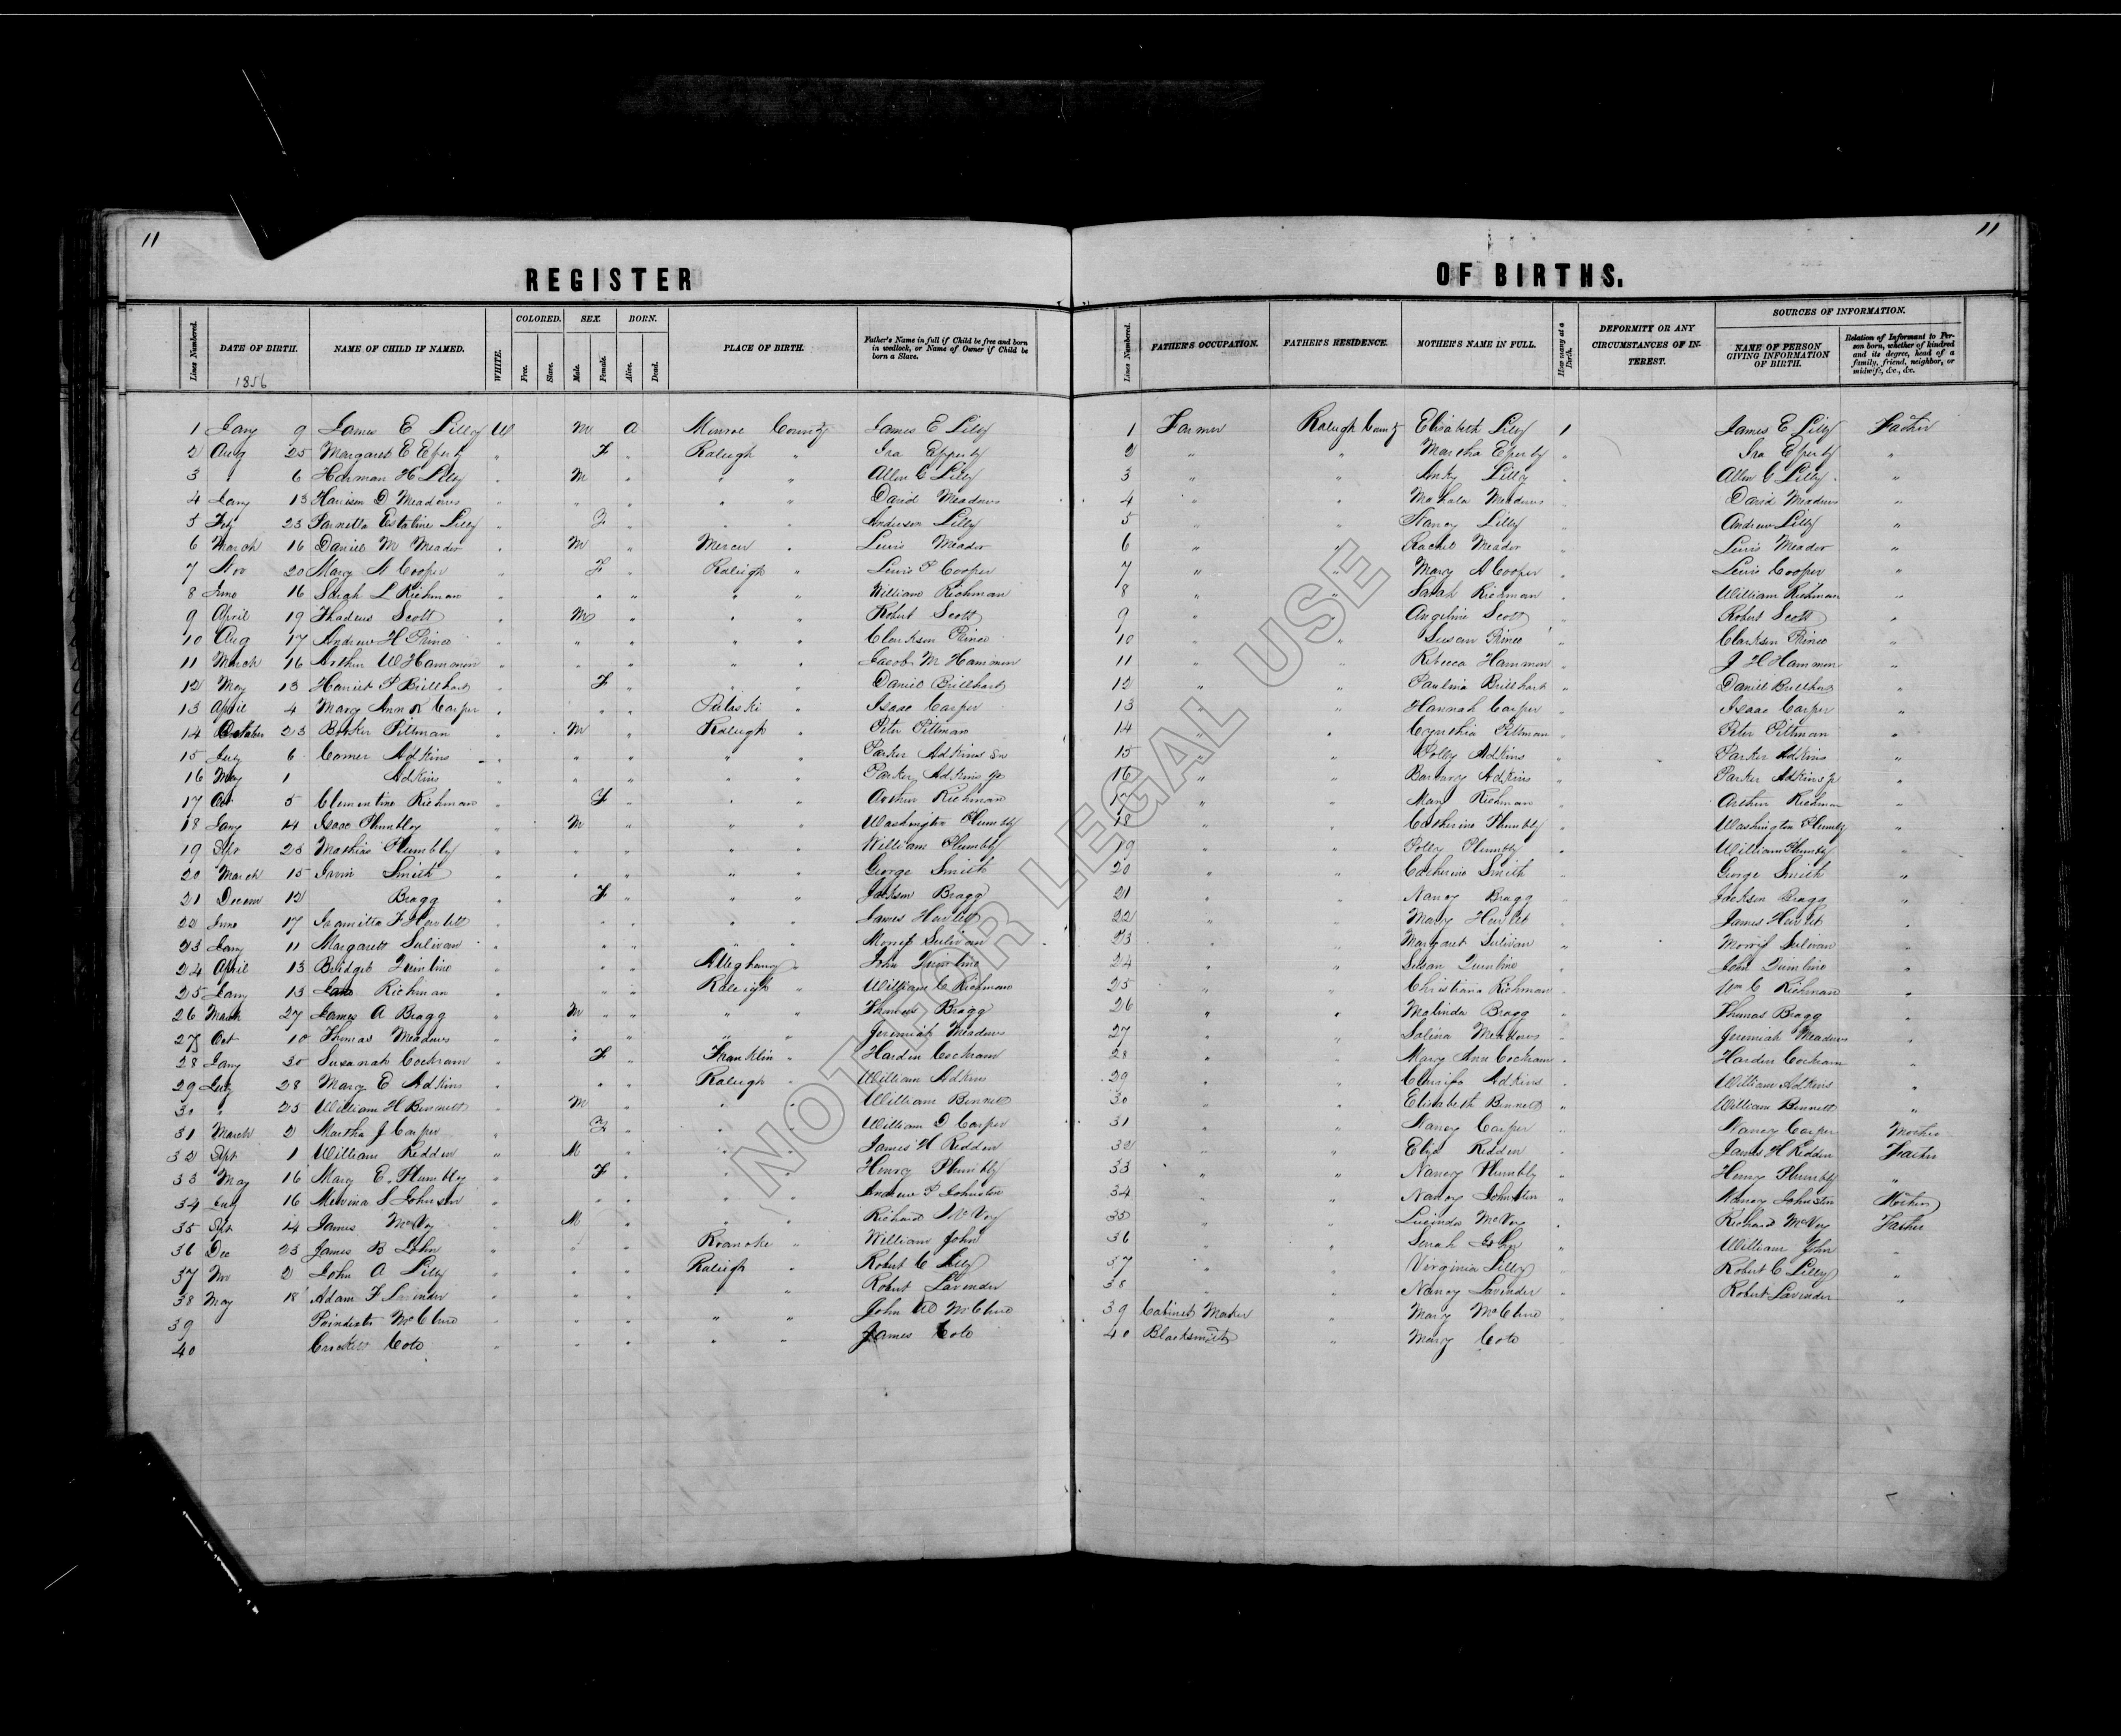 11
11
REGISTER OF BIRTHS.
Lines Numbered. DATE OF BIRTH. NAME OF CHILD IF NAMED. WHITE. COLORED. Free. Slave. SEX. Male. Female. BORN. Alive. Dead. PLACE OF BIRTH. Father's Name in full if Child be free and born in wedlock, or Name of Owner if Child be born a Slave.
Lines Numbered. FATHER'S OCCUPATION. FATHER'S RESIDENCE. MOTHER'S NAME IN FULL. How many at a Birth. DEFORMITY OR ANY CIRCUMSTANCES OF INTEREST. SOURCES OF INFORMATION. NAME OF PERSON GIVING INFORMATION OF BIRTH. Relation of Informant to Person born, whether of kindred and its degree, head of a family, friend, neighbor, or midwife, &c., &c.
1856
1 Jany 9 James E Lilly W M A Monroe County James E Lilly 1 Farmer Raleigh County Elisabeth Lilly 1 James E Lilly Father
2 Aug 25 Margaret E Eperly " F " Raleigh " Ira Epperly 2 " " Martha Eperly " Ira Eperly "
3 " 6 Harman H Lilly " M " " " Allen C Lilly 3 " " Lilly " Allen C Lilly "
4 Jany 13 Harrison D Meadows " " " " " David Meadows 4 " " Mahala Meadows " David Meadows "
5 Feb 23 Estaline Lilly " F " " " Anderson Lilly 5 " " Nancy Lilly " Andrew Lilly "
6 March 16 Daniel M Meador " M " Mercer " Lewis Meador 6 " " Rachel Meador " Lewis Meador "
7 Nov 20 Mary Cooper " F " Raleigh " Lewis P Cooper 7 " " Mary A Cooper " Lewis Cooper "
8 June 16 Sarah L Richman " " " " " William Richman 8 " " Sarah Richman " William Richman "
9 April 19 Thadeus Scott " M " " " Robert Scott 9 " " Angeline Scott " Robert Scott "
10 Aug 17 Andrew H Prince " " " " " Clarkson Prince 10 " " Susan Prince " Clarkson Prince "
11 March 16 Arthur W Hammon " " " " " Jacob M Hammon 11 " " Rebecca Hammon " J H Hammon "
12 May 13 Harriet P Brillhart " F " " " Daniel Brillhart 12 " " Paulina Brillhart " Daniel Brillhart "
13 April 4 Mary Ann R Carper " " " Pulaski " Isaac Carper 13 " " Hannah Carper " Isaac Carper "
14 October 23 Pittman " M " Raleigh " Peter Pittman 14 " " Cynthia Pittman " Peter Pittman "
15 July 6 Comer Adkins " " " " " Parker Adkins Sn 15 " " Polly Adkins " Parker Adkins "
16 May 1 Adkins " " " " " Parker Adkins Jr 16 " " Barbary Adkins " Parker Adkins Jr "
17 Oct 5 Clementine Richman " F " " " Arthur Richman 17 " " Mary Richman " Arthur Richman "
18 Jany 14 Isaac Plumbley " M " " " Washington Plumbly 18 " " Catherine Plumbly " Washington Plumbly "
19 23 Mathias Plumbly " " " " " William Plumbly 19 " " Polly Plumbly " William Plumbly "
20 March 15 Irvin Smith " " " " " George Smith 20 " " Catherine Smith " George Smith "
21 Decem 12 Bragg " F " " " Jackson Bragg 21 " " Nancy Bragg " Jackson Bragg "
22 June 17 " " " " " James 22 " " Mary " James "
23 Jany 11 Margarett Sulivan " " " " " Morris Sulivan 23 " " Margaret Sulivan " Morris Sulivan "
24 April 13 Bridget Quinline " " " Alleghany " John Quinline 24 " " Susan Quinline " John Quinline "
25 Jany 13 Jane Richman " " " Raleigh " William C Richman 25 " " Christiana Richman " Wm C Richman "
26 March 27 James A Bragg " M " " " Thomas Bragg 26 " " Malinda Bragg " Thomas Bragg "
27 Oct 10 Thomas Meadows " " " " " Jeremiah Meadows 27 " " Salina Meadows " Jeremiah Meadows "
28 Jany 30 Susanah Cochram " F " Franklin " Harden Cochram 28 " " Mary Ann Cochram " Harden Cochram "
29 July 28 Mary E Adkins " " " Raleigh " William Adkins 29 " " Adkins " William Adkins "
30 " 25 William H Bennett " M " " " William Bennett 30 " " Elisabeth Bennett " William Bennett "
31 March 2 Martha J Carper " F " " " William D Carper 31 " " Nancy Carper " Nancy Carper Mother
32 Spt 1 William Redden " M " " " James H Redden 32 " " Eliza Redden " James H Redden Father
33 May 16 Mary E. Plumbley " F " " " Henry Plumbly 33 " " Nancy Plumbly " Henry Plumbly "
34 July 16 Melvina S Johnson " " " " " Andrew P Johnston 34 " " Nancy Johnston " Nancy Johnston Mother
35 Spt 14 James McVey " M " " " Richard McVey 35 " " Lucinda McVey " Richard McVey Father
36 Dec 23 James B John " " " Roanoke " William John 36 " " Sarah John " William John "
37 Nov 2 John A Lilly " " " Raleigh " Robert C Lilly 37 " " Virginia Lilly " Robert C Lilly "
38 May 18 Adam F Lavinder " " " " " Robert Lavender 38 " " Nancy Lavinder " Robert Lavinder "
39 Poindexter McClure " " " " " John W McClure 39 Cabinet Maker " Mary McClure "
40 Crockett Cole " " " " " James Cole 40 Blacksmith " Mary Cole "
NOT FOR LEGAL USE